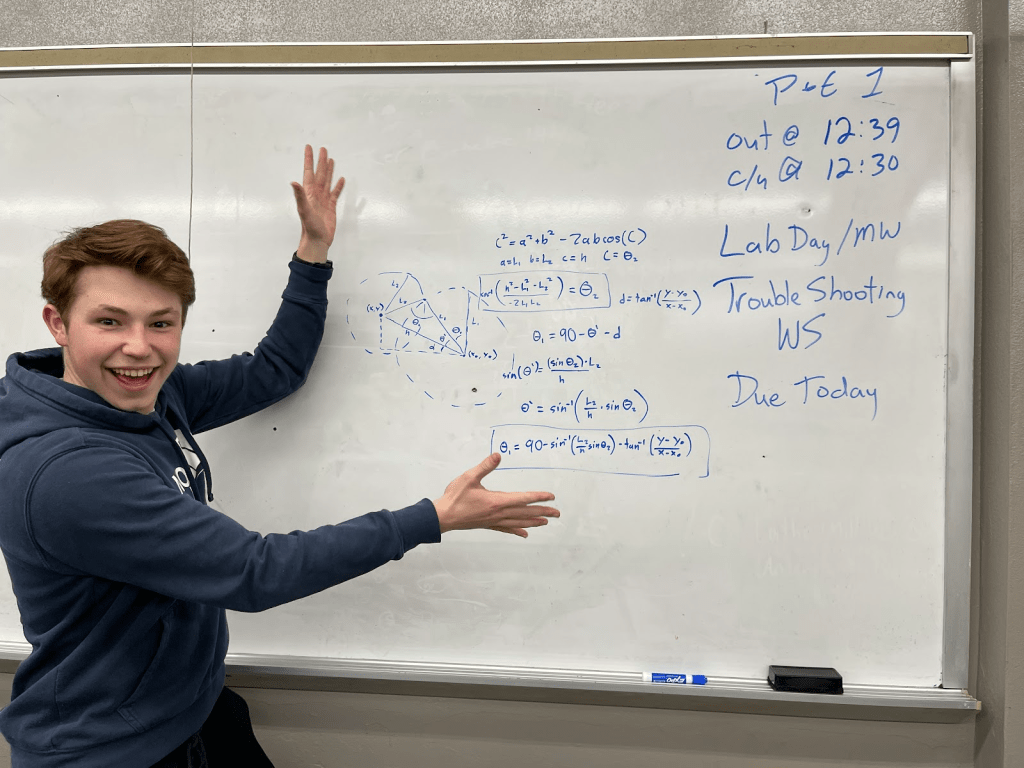 PLE 1
out @ 12:39
c/u @ 12:30
Lab Day/MW
Trouble Shooting
WS
Due Today
c² = a² + b² - 2abcos(C)
a=L₁ b=L₂ c=h C=θ₂
cos⁻¹((h²-L₁²-L₂²)/(-2L₁L₂)) = θ₂
d = tan⁻¹((y-y₀)/(x-x₀))
θ₁ = 90 - θ' - d
sin(θ') = (sin θ₂)·L₂/h
θ' = sin⁻¹(L₂/h · sin θ₂)
θ₁ = 90 - sin⁻¹(L₂/h sin θ₂) - tan⁻¹((y-y₀)/(x-x₀))
(x,y)
L₂
L₂
L₁
L₁
θ₂
θ₂
h
θ'
d
(x₀, y₀)
EXPO